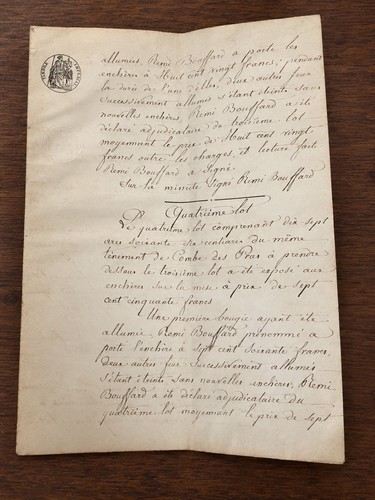 allumées, Remi Bouffard a porté les
enchères à Huit cent vingt francs; pendant
la durée de l'une d'elles, deux autres feux
Successivement allumés s'étant éteints sans
nouvelles enchères, Remi Bouffard a été
déclaré adjudicataire du troisième lot
moyennant le prix de Huit cent vingt
francs outre les charges, et lecture faite
Remi Bouffard a Signé
Sur la minute Signé Remi Bouffard
Quatrième lot
Le quatrième lot comprenant dix sept
ares soixante dix centiares du même
tènement de Combe des à prendre
dessous le troisième lot a été exposé aux
enchères sur la mise à prix de sept
cent cinquante francs
Une première bougie ayant été
allumée, Remi Bouffard prénommé a
porté l'enchère à sept cent soixante francs,
Deux autres feux Successivement allumés
s'étant éteints sans nouvelles enchères, Remi
Bouffard a été déclaré adjudicataire du
quatrième lot moyennant le prix de sept